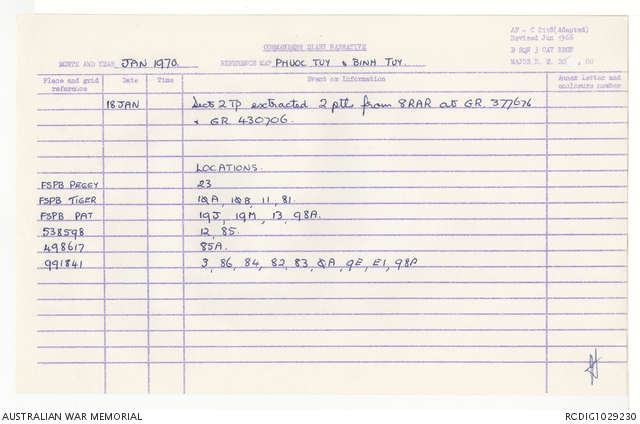 COMMANDERS DIARY NARRATIVE
AF - C 2118(Adapted)
Revised Jun 1966
B SQN 3 CAV REGT
MONTH AND YEAR JAN 1970. REFERENCE MAP PHUOC TUY & BINH TUY.
MAJOR
Place and grid reference Date Time Event or Information Annex Letter and enclosure number
18 JAN Sect 2 TP extracted 2 ptls from 8RAR at GR. 377676
& GR 430706.
LOCATIONS.
FSPB PEGGY 23
FSPB TIGER 1QA, 1QB, 11, 81.
FSPB PAT 19J, 19M, 13, 98A.
538598 12, 85.
498617 85A.
991841 3, 86, 84, 82, 83, 8A, 9E, E1, 98A
AUSTRALIAN WAR MEMORIAL
RCDIG1029230